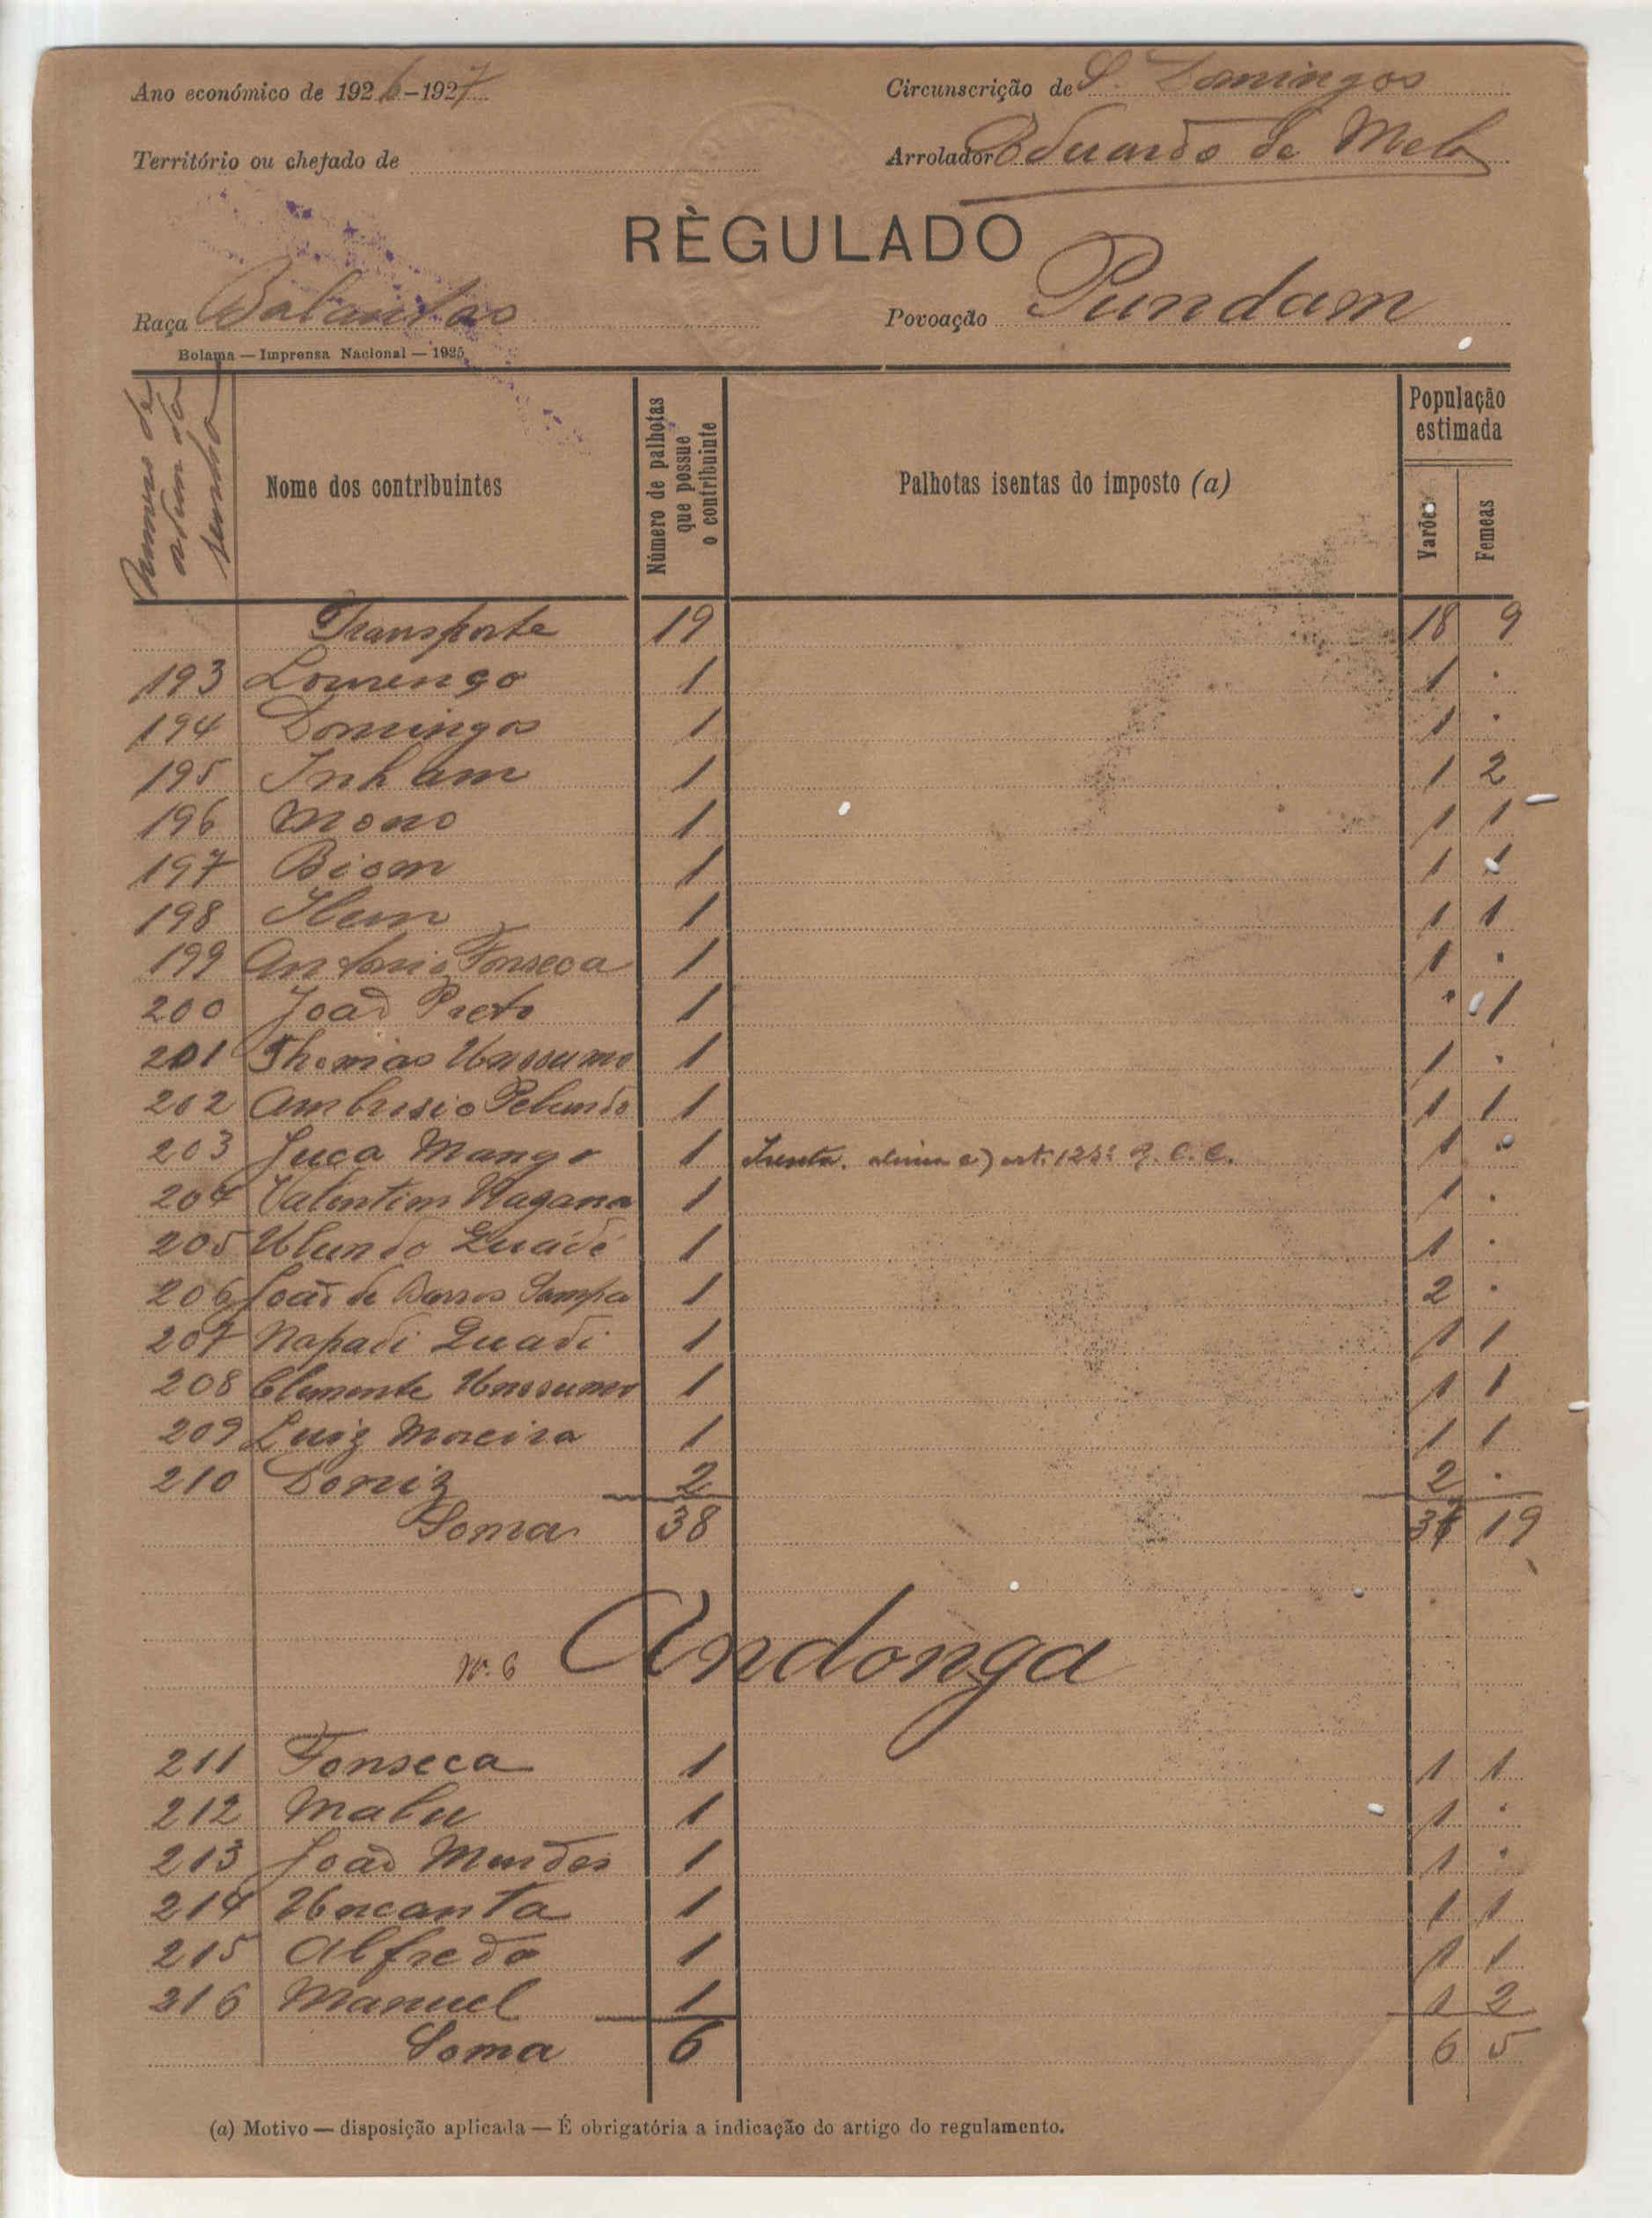 Ano económico de 1926-1927
Circunscrição de S. Domingos
Território ou chefado de
Arrolador Eduardo de Melo
RÈGULADO
Raça Balantas
Povoação Pundam
Bolama — Imprensa Nacional — 1925
Numero de
Nome dos contribuintes
Número de palhotas que possue o contribuinte
Palhotas isentas do imposto (a)
População estimada
Varões
Femeas
Transporte 19 18 9
193 Lourenço 1 1 .
194 Domingos 1 1 .
195 Inham 1 1 2
196 Mono 1 1 1
197 Biom 1 1 1
198 1 1 1
199 Antonio Fonseca 1 1 .
200 João Preto 1 . 1
201 Thomas Unssumo 1 1 .
202 Ambrosio Pelundo 1 1 1
203 Juca Mango 1 Isenta. alinea a) art. 125º 1 .
204 Valentim 1 1 .
205 Ulundo Quádé 1 1 .
206 João de Barros Sampa 1 2 .
207 Napadi Quadi 1 1 1
208 Clemente Unssumo 1 1 1
209 Luiz Moreira 1 1 1
210 Doniz 2 2 .
Soma 38 37 19
Nº 6 Andonga
211 Fonseca 1 1 1
212 Malu 1 1 .
213 João Mendes 1 1 .
214 Uncanta 1 1 1
215 Alfredo 1 1 1
216 Manuel 1 1 2
Soma 6 6 5
(a) Motivo — disposição aplicada — É obrigatória a indicação do artigo do regulamento.